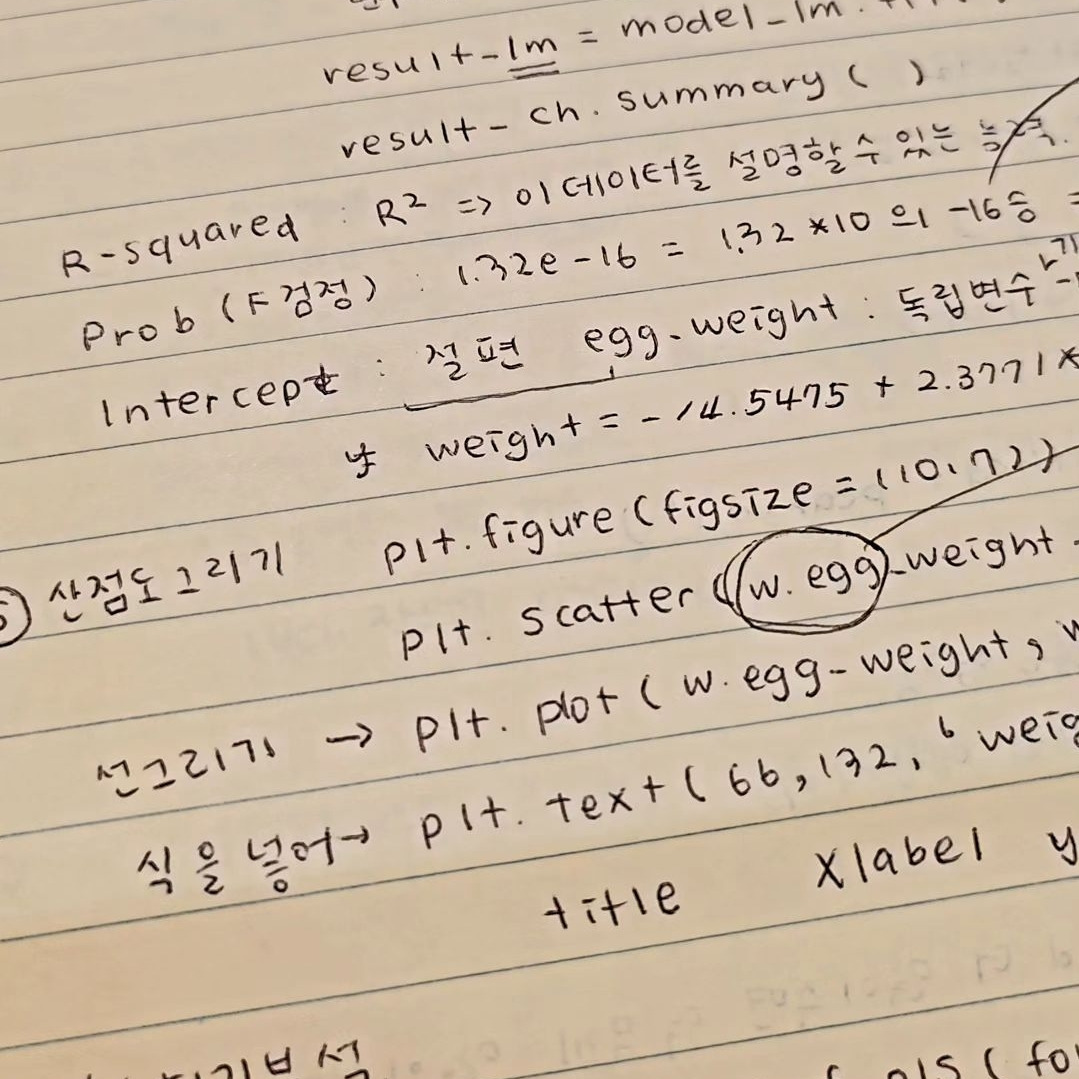 result-lm = model-lm.
result-ch.summary ( )
R-squared : R² => 이 데이터를 설명할 수 있는 능력.
Prob (F검정) : 1.32e-16 = 1.32 *10 의 -16승 =
Intercept : 절편 egg-weight : 독립변수
weight = -14.5475 + 2.3771*
산점도 그리기 plt.figure (figsize = (10,7))
plt. scatter (w. egg-weight
선그리기 → plt. plot ( w. egg-weight,
식을 넣어→ plt. text ( 66, 132, ' weig
title Xlabel y
ols ( fo